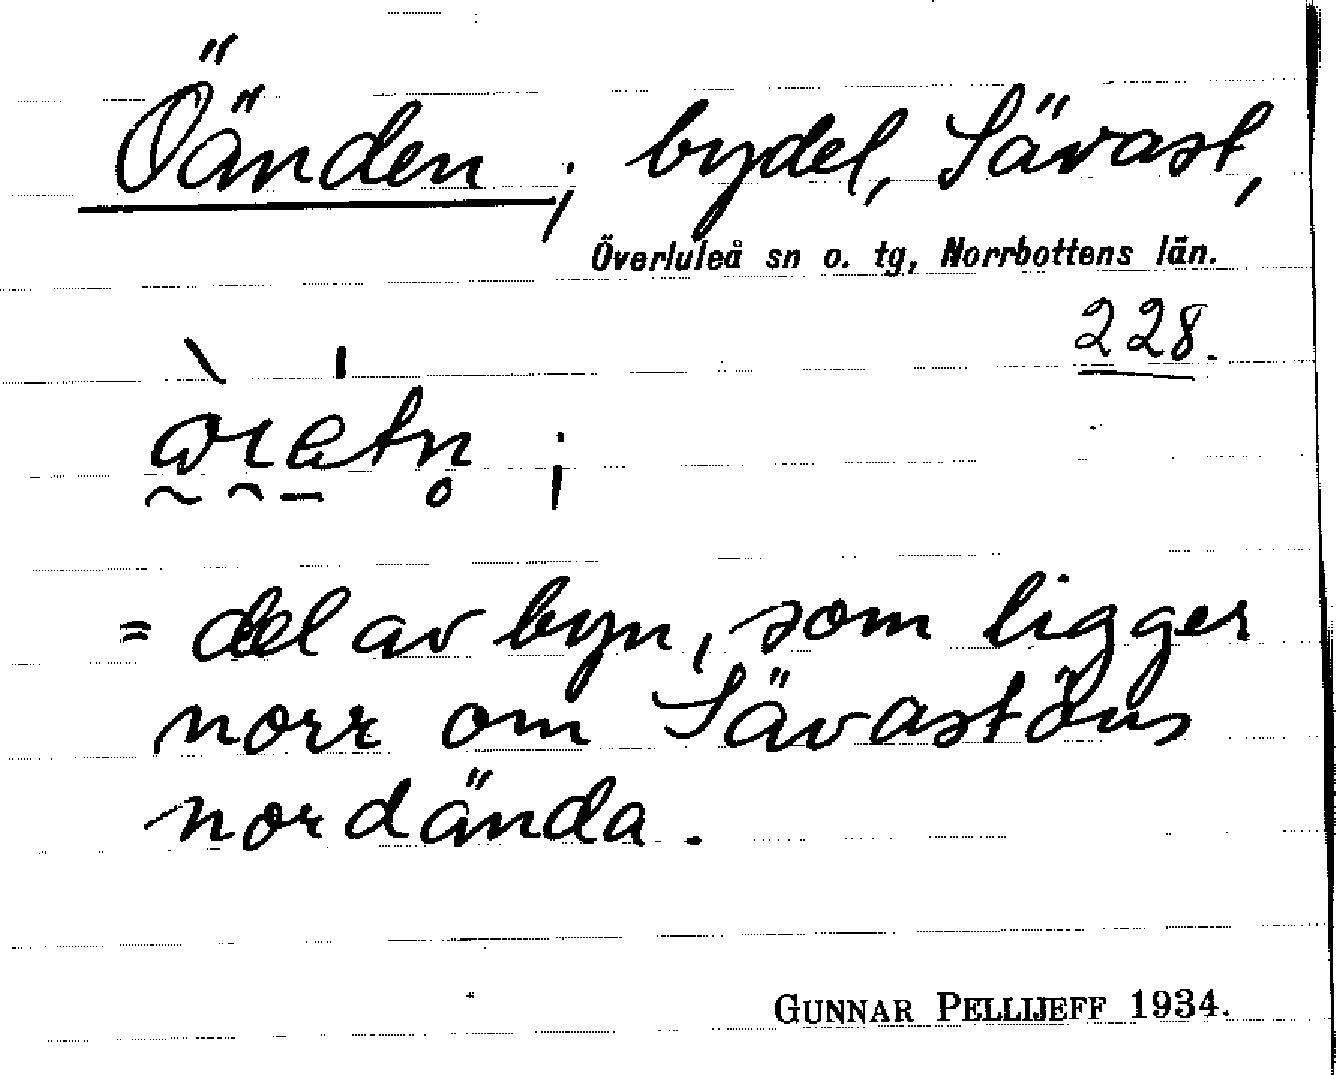 Öänden; bydel, Sävast,
Överluleå sn o. tg, Norrbottens län.
228.
= del av byn, som ligger
norr om Sävastöns
nordända.
GUNNAR PELLIJEFF 1934.